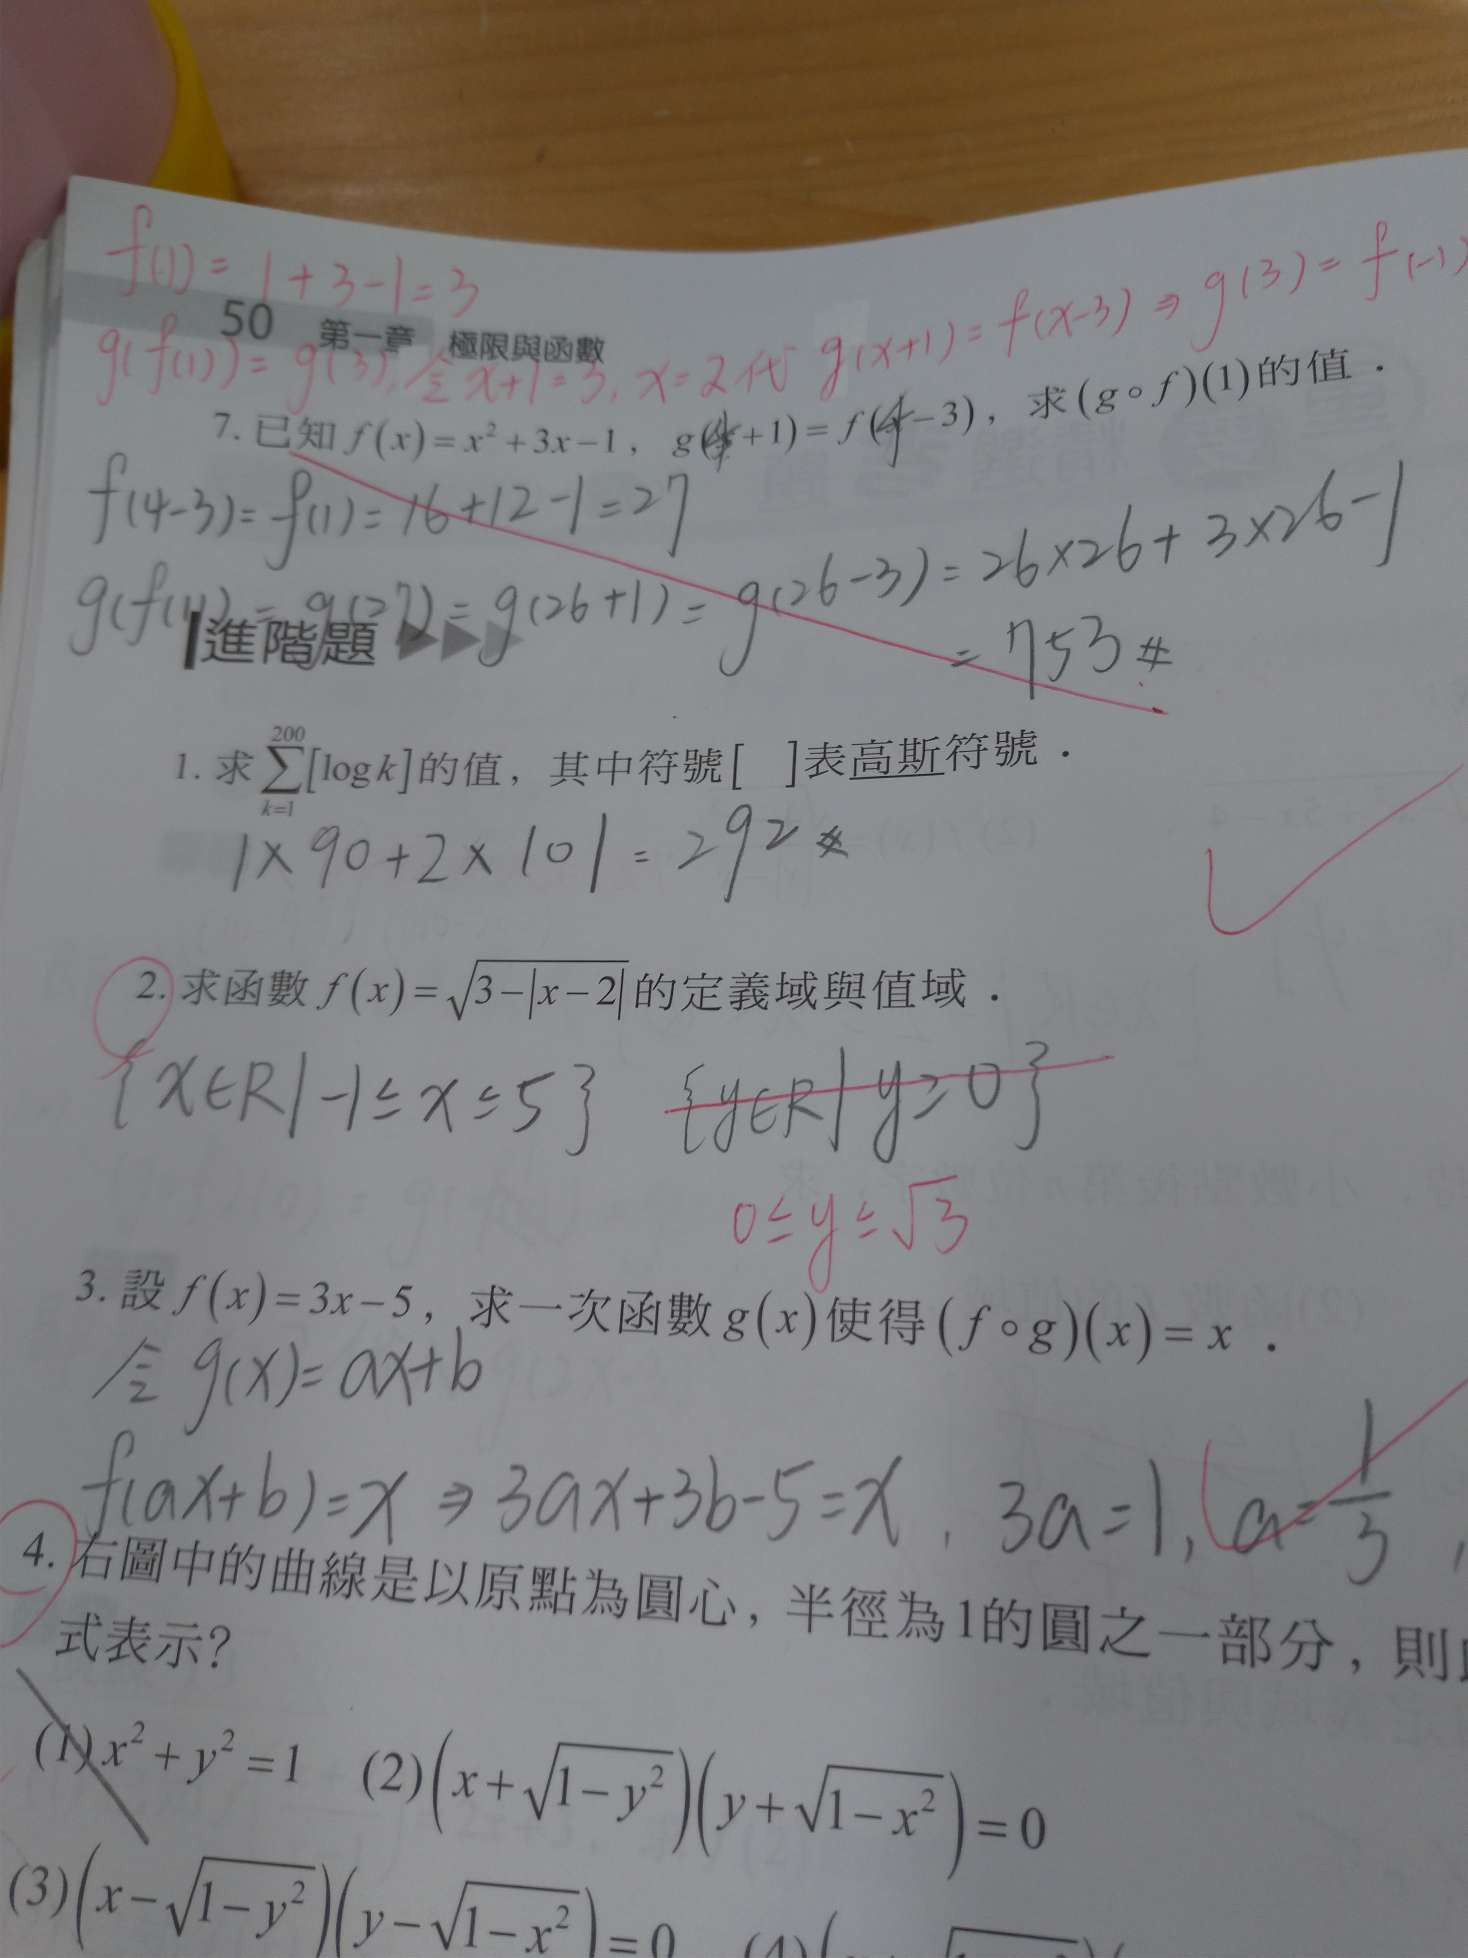 f(1) = 1+3-1=3
50 第一章 極限與函數
g(f(1)) = g(3), 令x+1=3, x=2代 g(x+1)=f(x-3) ⇒ g(3)=f(-1)
7. 已知 f(x)=x²+3x-1, g( +1)=f( -3), 求(g∘f)(1)的值.
f(4-3)=f(1)=16+12-1=27
g(f(1))=g(27)=g(26+1)=g(26-3)=26×26+3×26-1
=753#
進階題
1. 求 \sum_{k=1}^{200}[log k]的值, 其中符號[ ]表高斯符號.
1×90+2×101=292#
2. 求函數 f(x)=√(3-|x-2|)的定義域與值域.
{x∈R|-1≤x≤5} {y∈R|y≥0}
0≤y≤√3
3. 設 f(x)=3x-5, 求一次函數 g(x)使得(f∘g)(x)=x.
令 g(x)=ax+b
f(ax+b)=x ⇒ 3ax+3b-5=x, 3a=1, a=1/3,
4. 右圖中的曲線是以原點為圓心, 半徑為1的圓之一部分, 則
式表示?
(1) x²+y²=1 (2)(x+√(1-y²))(y+√(1-x²))=0
(3)(x-√(1-y²))(y-√(1-x²))=0 (4)(